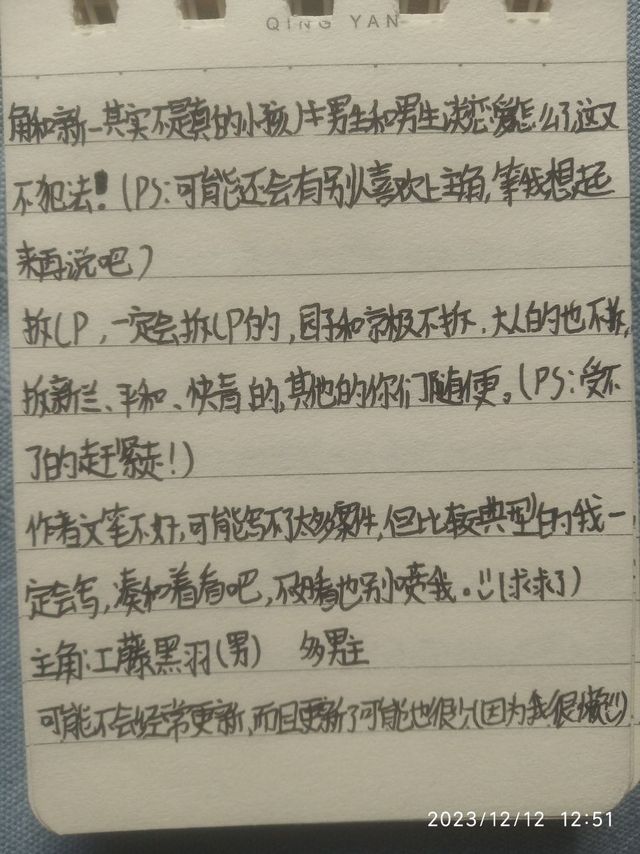 QING YAN
角和新一其实不是真的小孩)生男生和男生谈恋爱怎么了,这又
不犯法!(PS:可能还会有别人喜欢上主角,等我想起
来再说吧)
拆CP,一定会拆CP的,园子和京极不拆,大人的也不拆,
拆新兰、平和、快青的,其他的你们随便。(PS:受不
了的赶紧走!)
作者文笔不好,可能写不了太多案件,但比较典型的我一
定会写,凑和着看吧,不好看也别喷我。(求求了)
主角:工藤黑羽(男) 多男主
可能不会经常更新,而且更新了可能也很少(因为我很懒)
2023/12/12 12:51